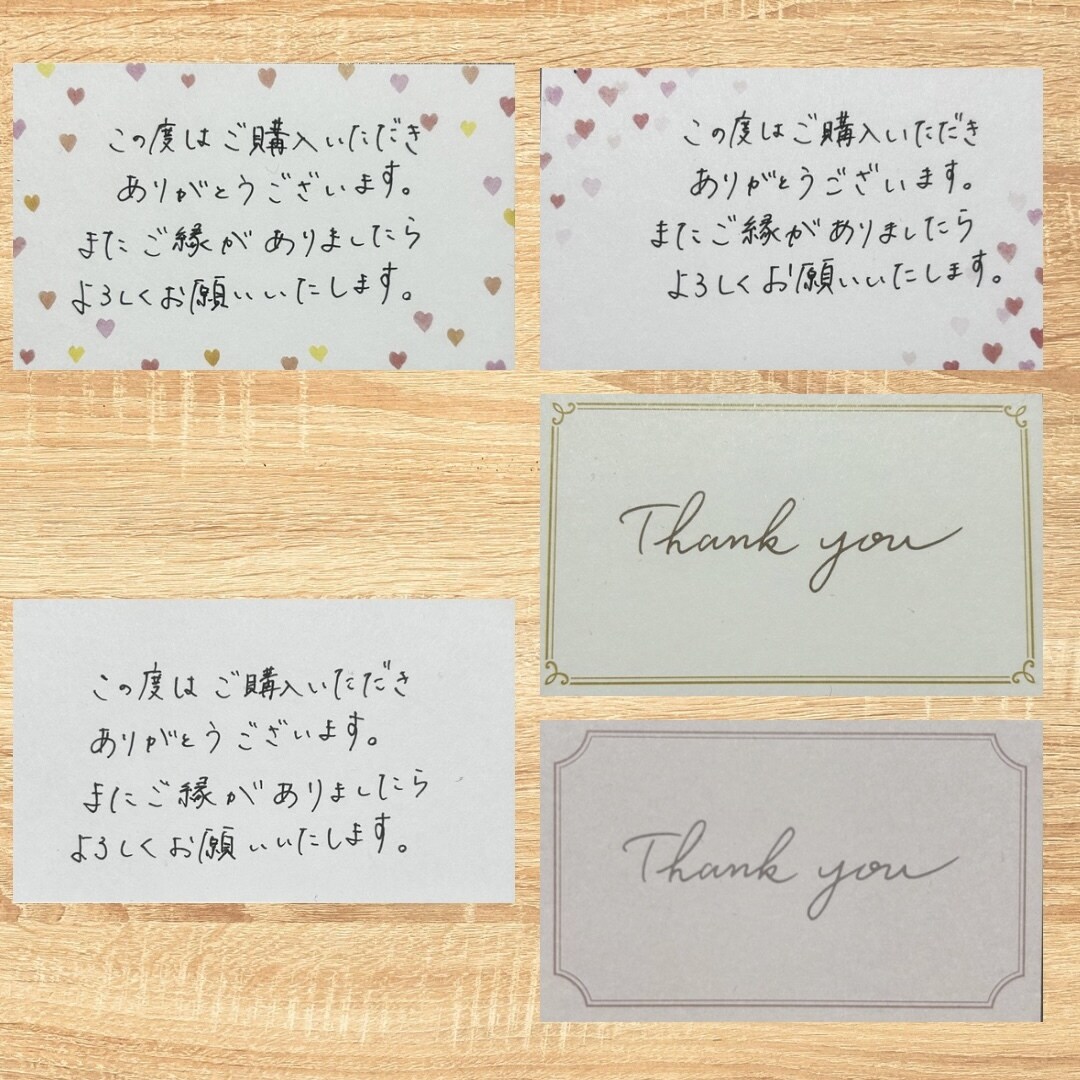 この度はご購入いただき
ありがとうございます。
またご縁がありましたら
よろしくお願いいたします。
この度はご購入いただき
ありがとうございます。
またご縁がありましたら
よろしくお願いいたします。
Thank you
この度はご購入いただき
ありがとうございます。
またご縁がありましたら
よろしくお願いいたします。
Thank you